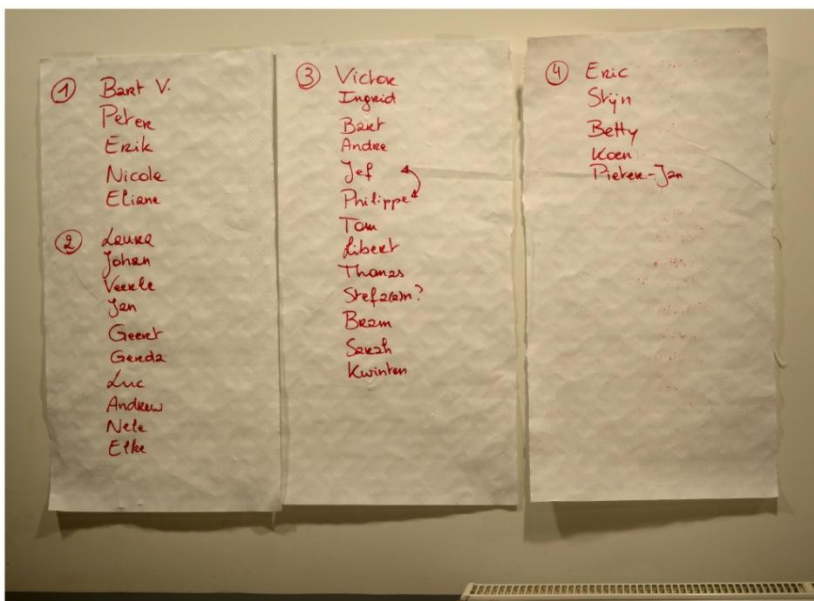 ① Bart V.
Peter
Erik
Nicole
Eliane
② Laura
Johan
Veerle
Jan
Geert
Gerda
Luc
Andrew
Nele
Elke
③ Victor
Ingrid
Bart
Andre
Jef
Philippe
Tom
Libert
Thomas
Stefa(a)n?
Bram
Sarah
Kwinten
④ Eric
Stijn
Betty
Koen
Pieter-Jan